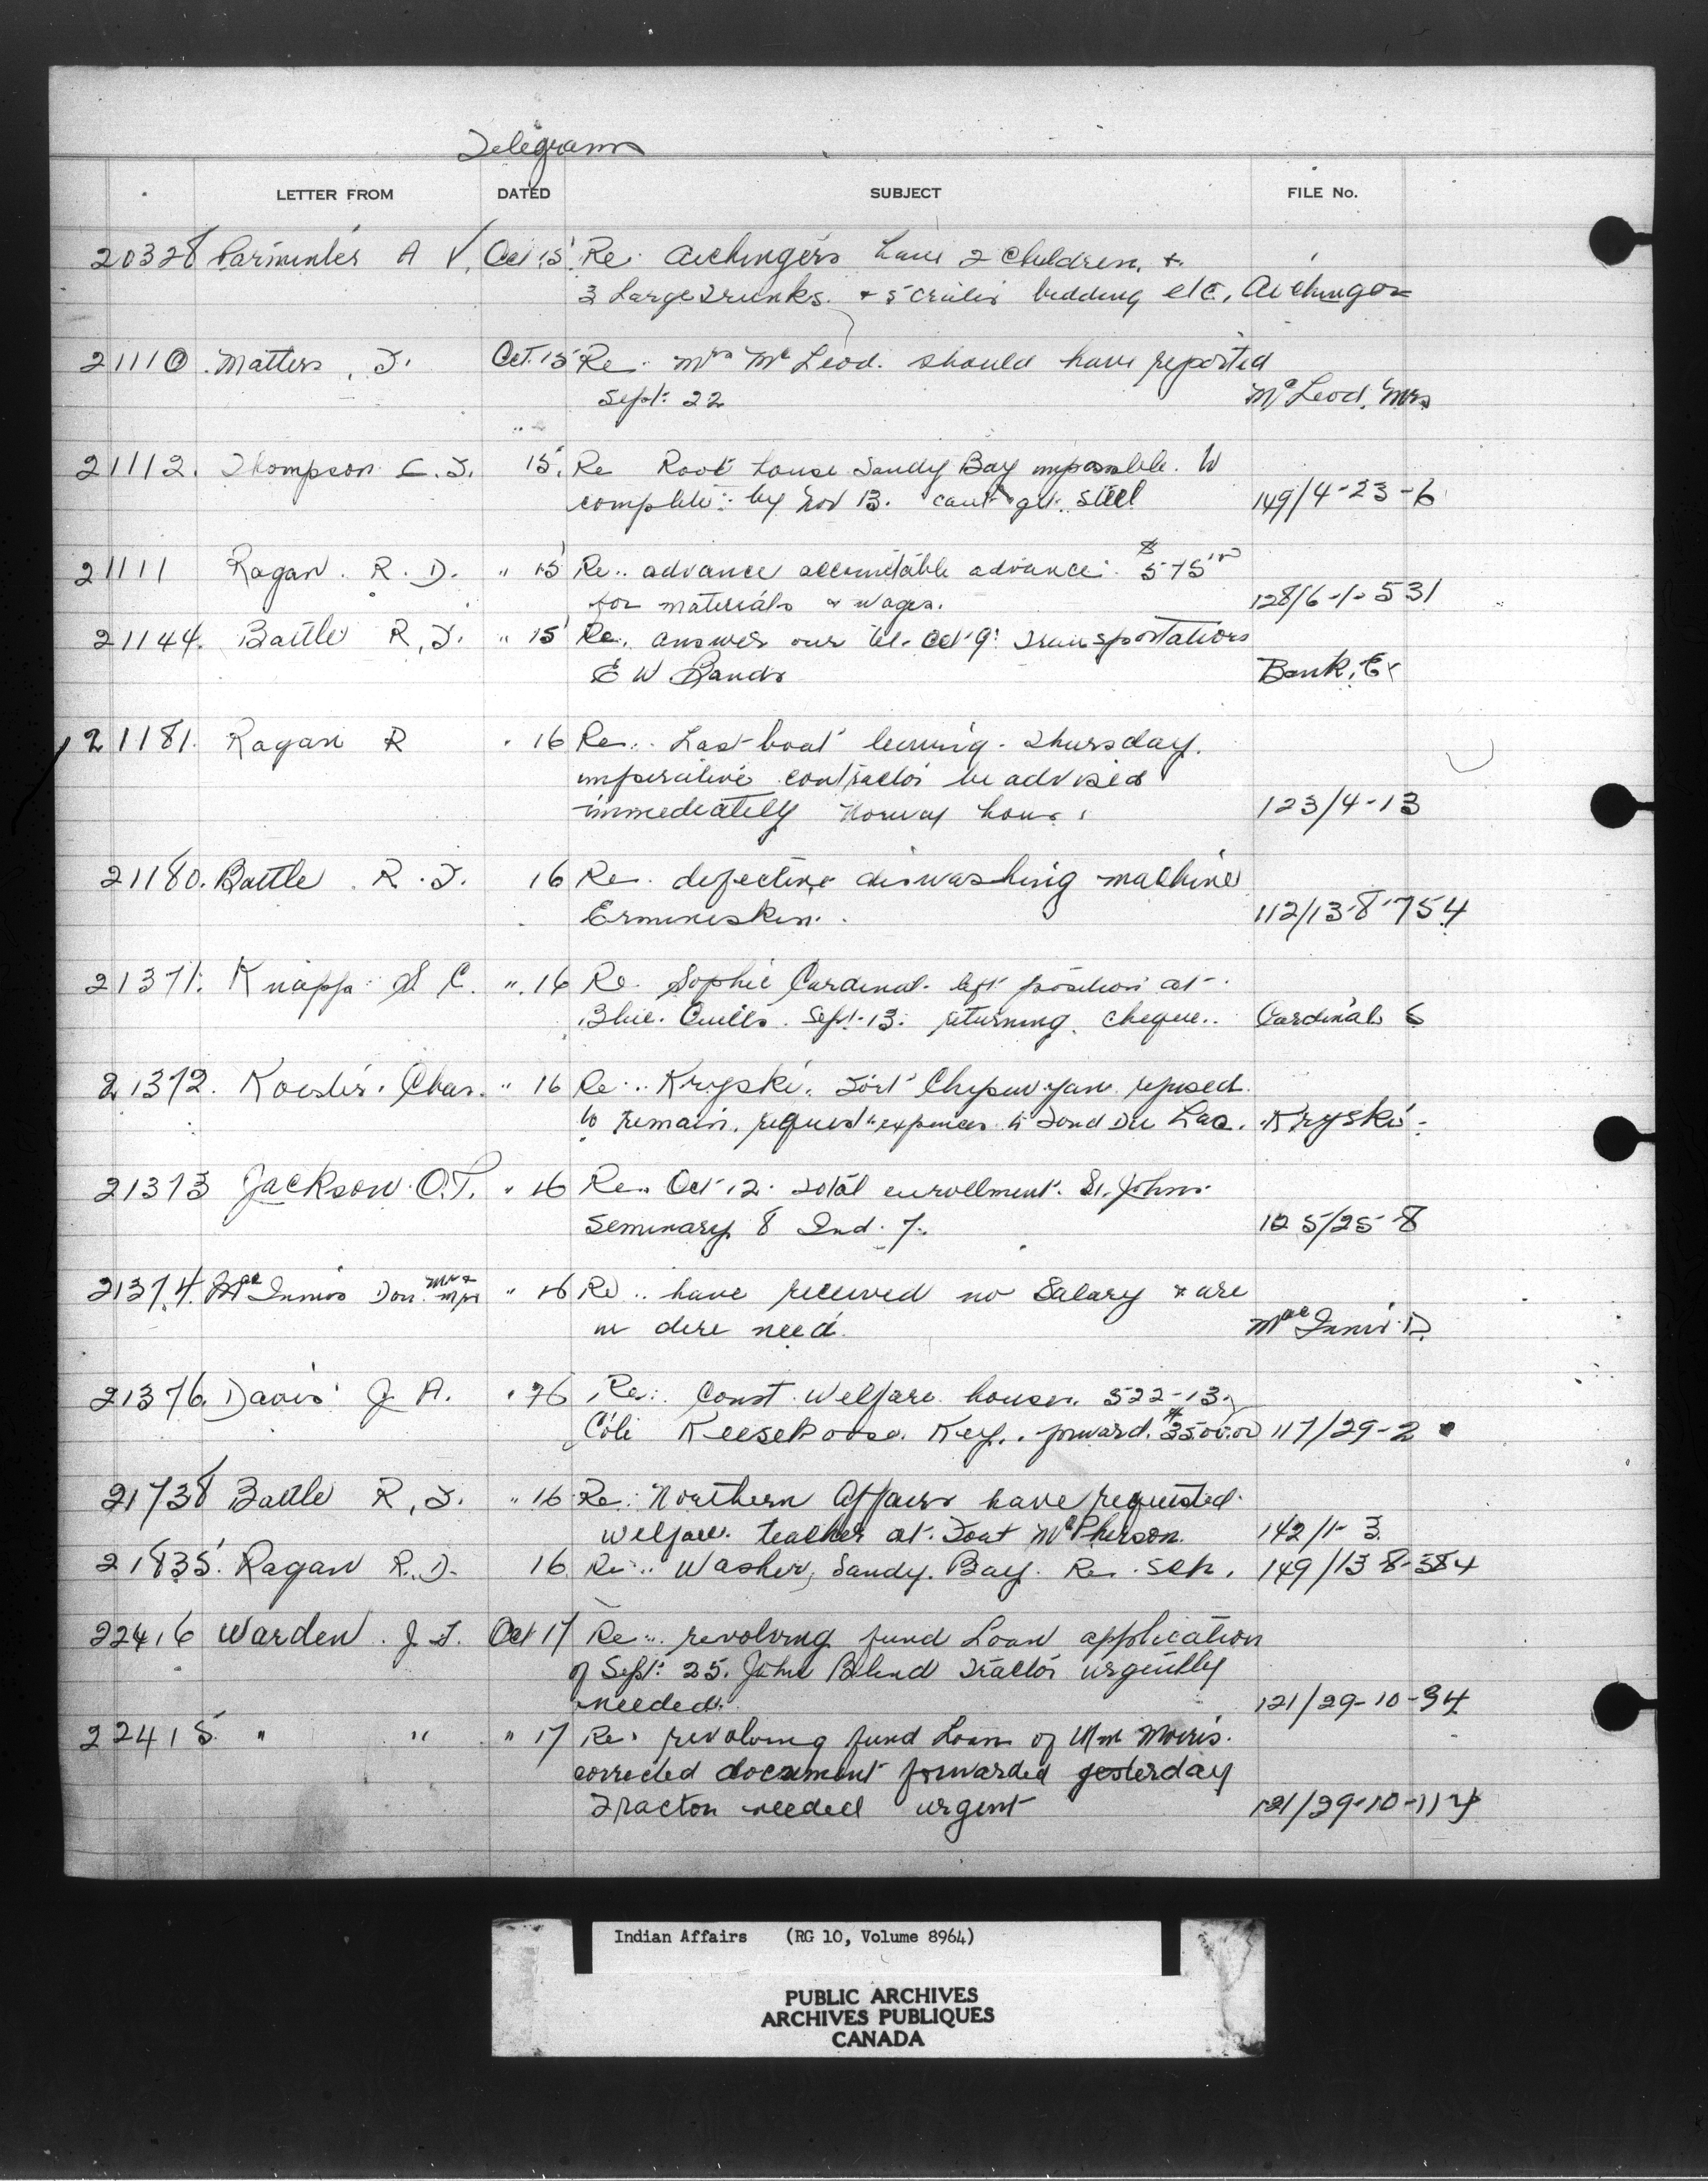 Telegrams
LETTER FROM DATED SUBJECT FILE No.
20328 Parminter A V. Oct 15 Re: Aichingers have 2 Children, +
3 Large Trunks. + 5 crates bedding etc. Aichinger
21110. Matters, T. Oct. 15 Re: Mrs McLeod. should have reported
Sept. 22 McLeod, Mrs
21112. Thompson C.T. 15. Re Root house Sandy Bay impossible. to
complete by Nov 13. cant get steel 149/4-23-6
21111 Ragan. R. D. " 15 Re.. advance accountable advance: $575
for materials & wages. 128/6-1-531
21144. Battle R, J. " 15 Re. answer our tel. Oct 9. Transportations
E W Bank, E
21181. Ragan R " 16 Re.. Last boat leaving. Thursday.
imperative contractor be advised
immediately Norway house 123/4-13
21180. Battle. R. J. 16 Re. defective diswashing machine
Ermineskin. 112/13-8-754
21371. Knapp S C. " 16 Re. Sophie Cardinal. left position at
Blue. Quills. Sept. 13. returning. cheque.. Cardinal S
21372. Koester. Chas. " 16 Re.. Kryski. Fort Chipewyan refused.
to remain. request expenses to Fond Du Lac. Kryski.
21373 Jackson. O.T. " 16 Re.. Oct 12. Total enrollment. St. Johns.
Seminary 8 Ind. 7. 125/25-8
21374. MacInnis Don. Mr & Mrs " 16 Re.. have received no Salary & are
in dire need. MacInnis. D.
21376. Davis J A. " 16 Re: Const. Welfare houses. 522-13.
Côté Keesekoose. Key. forward. $3500.00 117/29-2
21738 Battle R, J. " 16 Re: Northern Affairs have requested.
welfare. teacher at. Fort McPherson. 142/1-3
21835. Ragan R.D. 16 Re.. Washer, Sandy. Bay. Re. Sch. 149/13-8-384
22416 Warden. J T. Oct 17 Re.. revolving fund Loan application
of Sept. 25. John Blind Tractor urgently
needed. 121/29-10-94
22415 " " " 17 Re. revolving fund Loan of Wm Morris.
corrected document forwarded yesterday
Tractor needed urgent 121/29-10-114
Indian Affairs (RG 10, Volume 8964)
PUBLIC ARCHIVES
ARCHIVES PUBLIQUES
CANADA